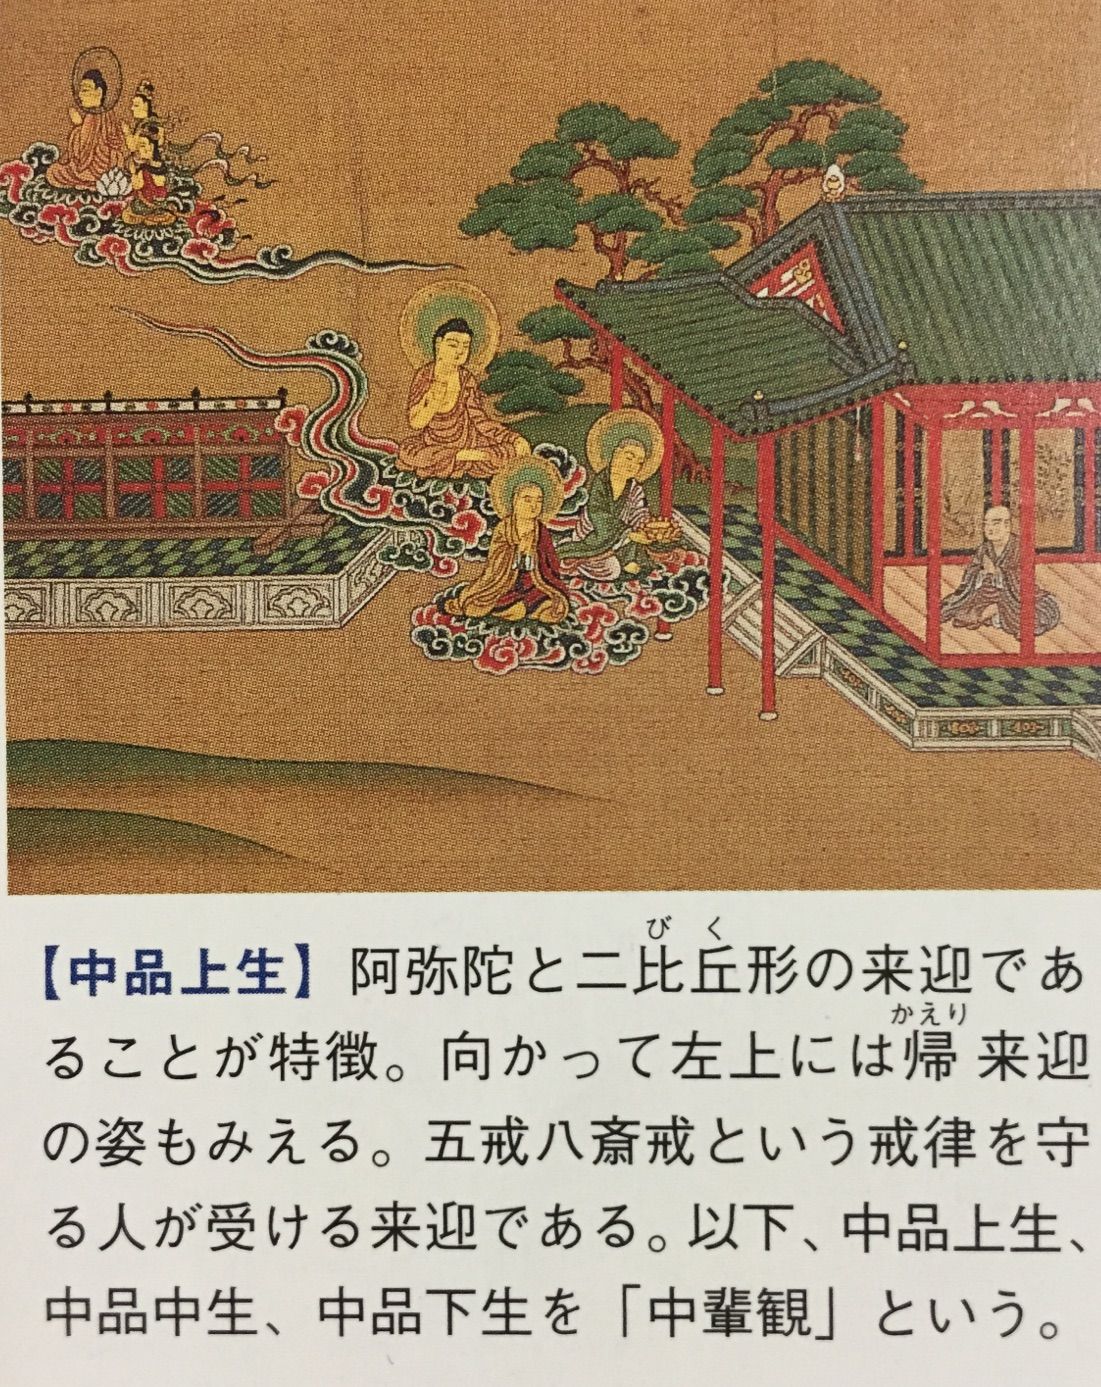 【中品上生】阿弥陀と二比丘形の来迎であ
びく
ることが特徴。向かって左上には帰来迎
かえり
の姿もみえる。五戒八斎戒という戒律を守
る人が受ける来迎である。以下、中品上生、
中品中生、中品下生を「中輩観」という。